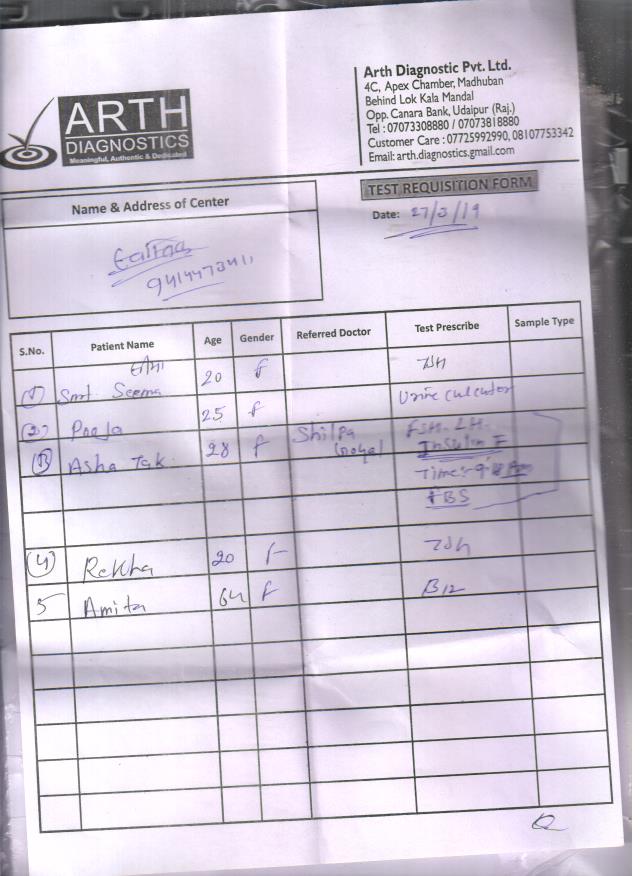 ARTH
DIAGNOSTICS
Meaningful, Authentic & Dedicated
Arth Diagnostic Pvt. Ltd.
4C, Apex Chamber, Madhuban
Behind Lok Kala Mandal
Opp. Canara Bank, Udaipur (Raj.)
Tel : 07073308880 / 07073818880
Customer Care : 07725992990, 08107753342
Email: arth.diagnostics.gmail.com
TEST REQUISITION FORM
Date: 27/3/19
Name & Address of Center
S.No. Patient Name Age Gender Referred Doctor Test Prescribe Sample Type
(1) Smt Seema 20 f TSH
(2) Pooja 25 f Urine culcutor
(3) Asha Tak 28 f Shilpa Goyal FSH. LH.
Insulin F
Time:-
FBS
(4) Rekha 20 f TSH
5 Amita 64 f B12